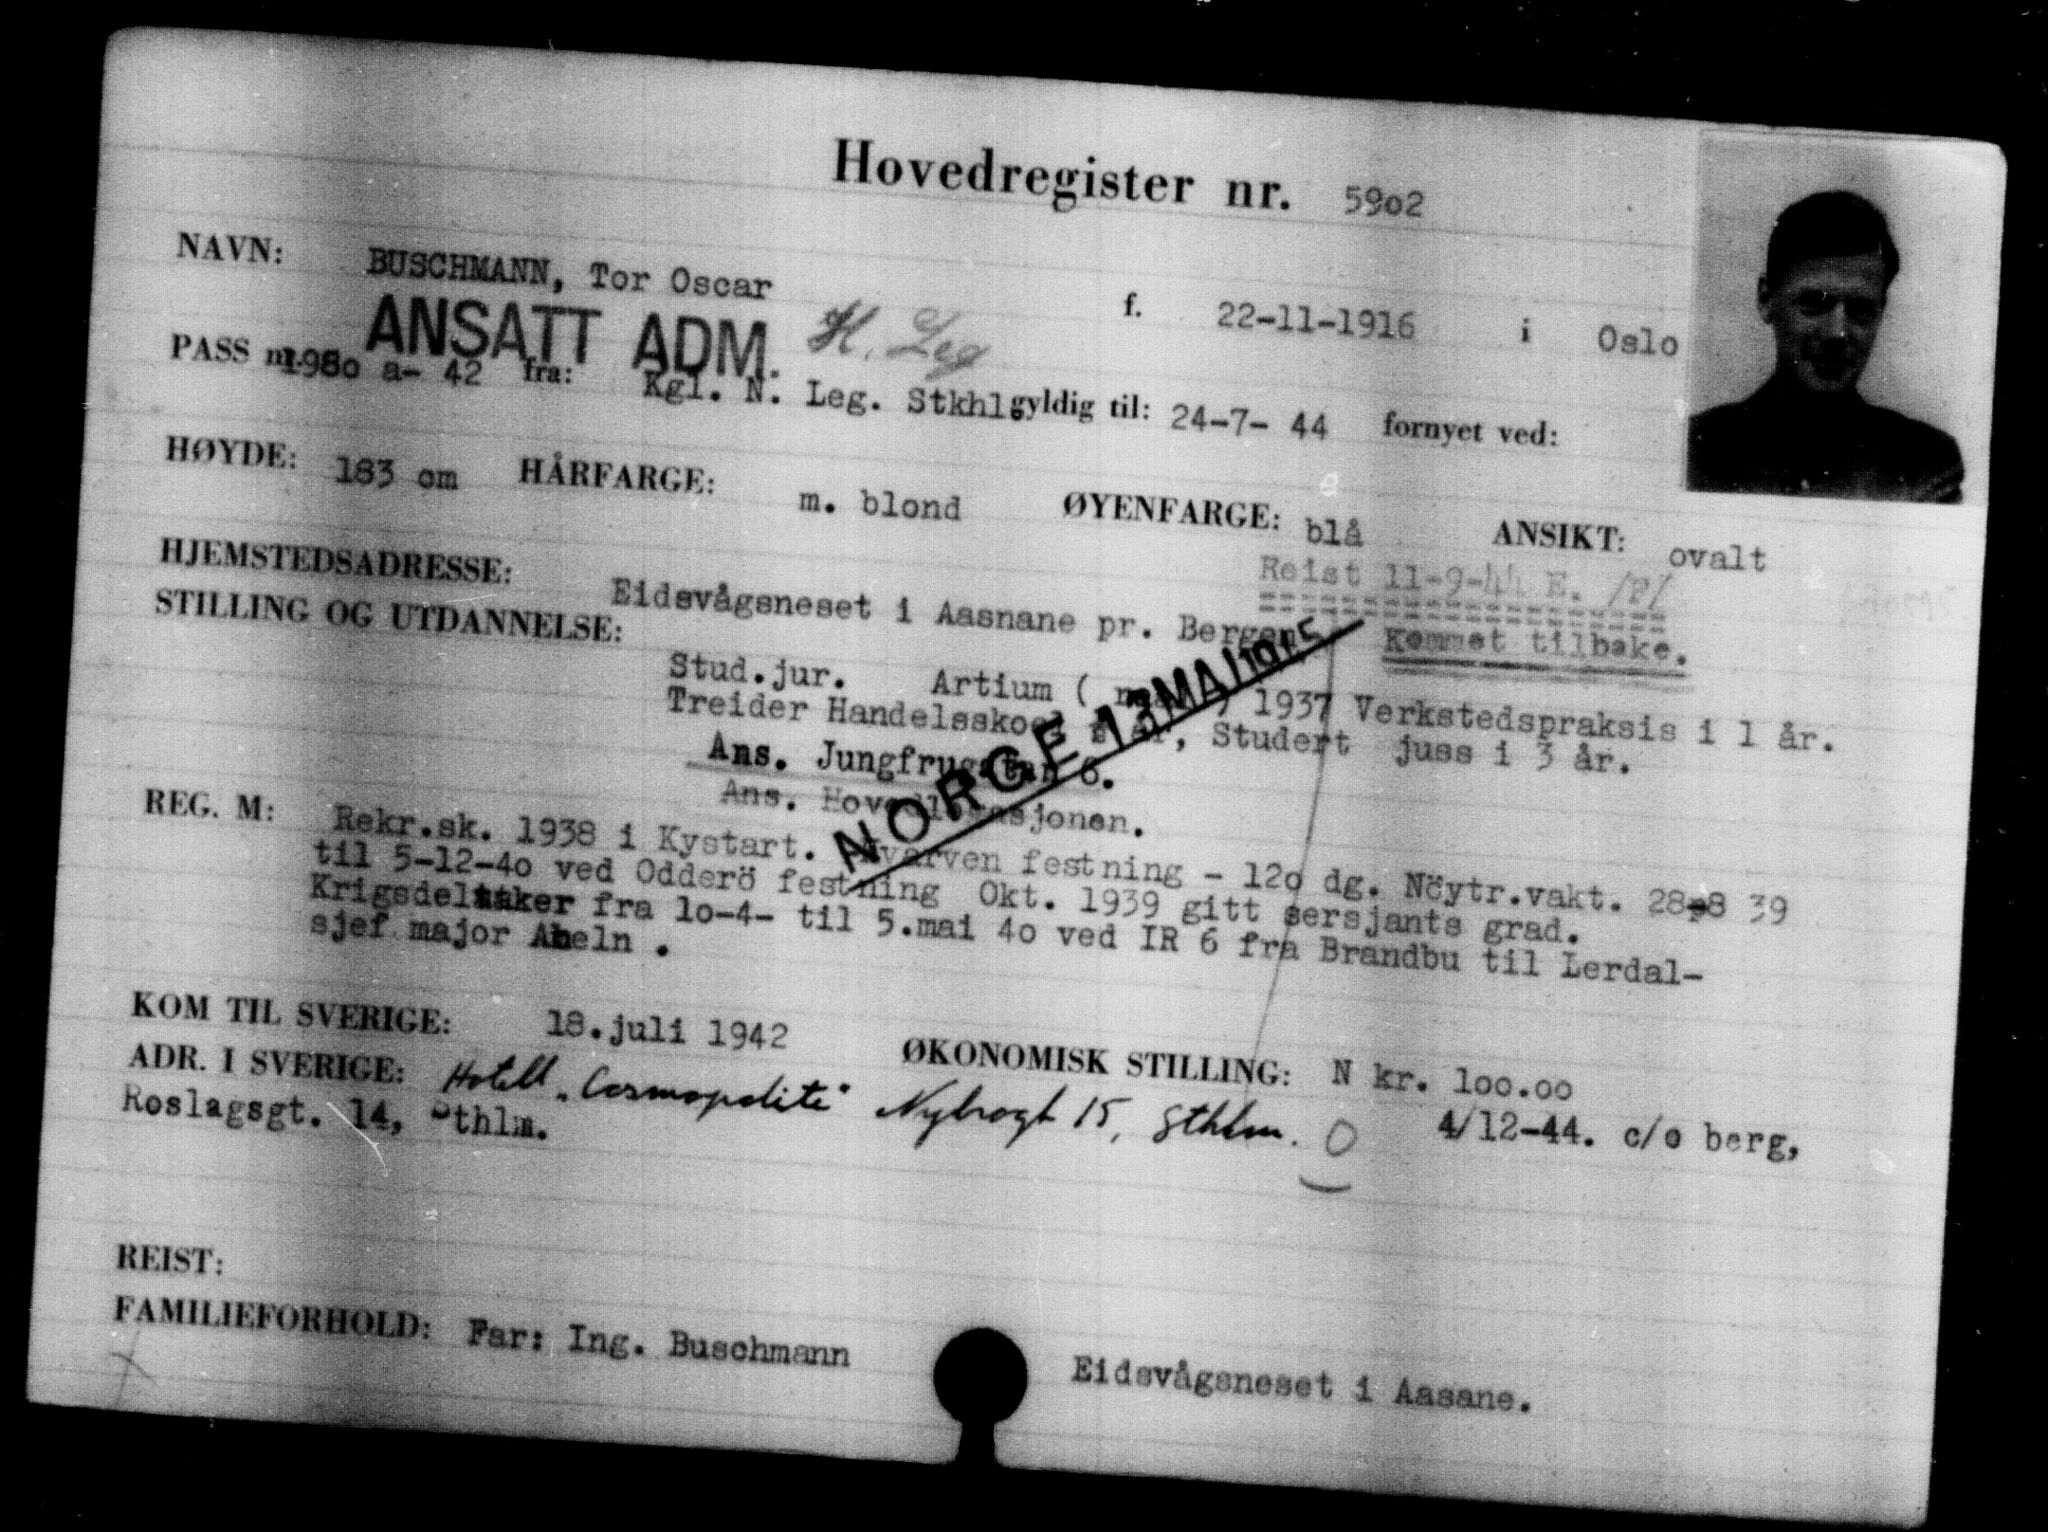 Hovedregister nr. 5902
NAVN: BUSCHMANN, Tor Oscar f. 22-11-1916 i Oslo
ANSATT ADM. H. Leg
PASS nr. 1980 a- 42 fra: Kgl. N. Leg. Stkhl. gyldig til: 24-7- 44 fornyet ved:
HØYDE: 183 cm HÅRFARGE: m. blond ØYENFARGE: blå ANSIKT: ovalt
Reist 11-9-44 E. /P/
HJEMSTEDSADRESSE: Eidsvågsneset i Aasnane pr. Bergen.
Kommet tilbake.
STILLING OG UTDANNELSE:
Stud.jur. Artium ( ) 1937 Verkstedspraksis i 1 år.
Treider Handelsskoel år, Studert juss i 3 år.
Ans. Jungfrugatan 6.
Ans. Hovedlegasjonen.
NORGE 17 MAI 1945
REG. M: Rekr.sk. 1938 i Kystart. Kvarven festning - 120 dg. Nöytr.vakt. 28-8 39
til 5-12-40 ved Odderö festning Okt. 1939 gitt sersjants grad.
Krigsdeltaker fra 10-4- til 5.mai 40 ved IR 6 fra Brandbu til Lerdal-
sjef major Abeln .
KOM TIL SVERIGE: 18.juli 1942 ØKONOMISK STILLING: N kr. 100.00
ADR. I SVERIGE: Hotell "Cosmopolite" Nybrogt 15, Sthlm. O 4/12-44. c/o berg,
Roslagsgt. 14, Sthlm.
REIST:
FAMILIEFORHOLD: Far: Ing. Buschmann Eidsvågsneset i Aasane.